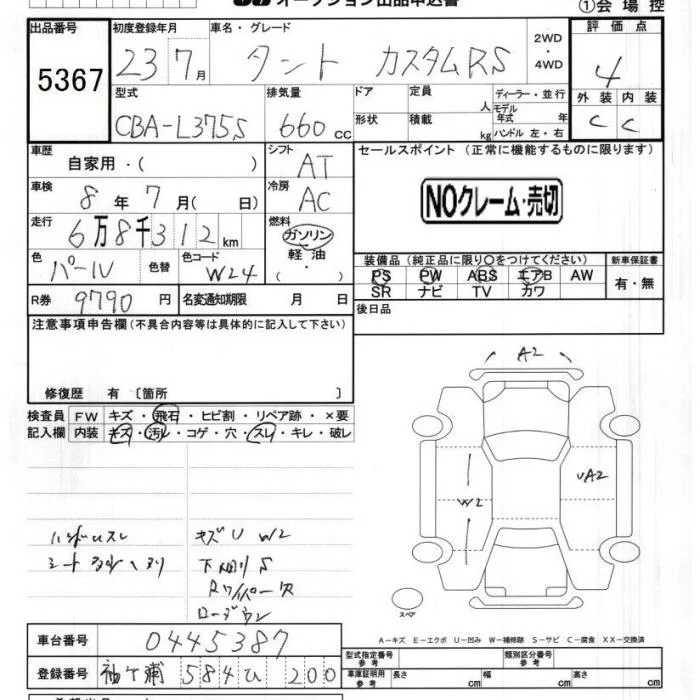 オークション出品申込書
①会場控
出品番号 初度登録年月 車名・グレード 評価点
5367 23 7月 タント カスタムRS 2WD・4WD 4
型式 排気量 ドア 定員 人 ディーラー・並行 外装 内装
CBA-L375S 660cc 形状 積載 kg モデル年式 年 ハンドル 左・右 C C
車歴 自家用・( ) シフト AT セールスポイント (正常に機能するものに限ります)
車検 8年7月( 日) 冷房 AC
NOクレーム・売切
走行 6万8千312km 燃料 ガソリン 軽油 ・( )
色 パール 色替 色コード W24
装備品(純正品に限り○をつけてください) 新車保証書
PS PW ABS エアB AW 有・無
SR ナビ TV カワ
R券 9790円 名変通知期限 月 日
後日品
注意事項申告欄(不具合内容等は具体的に記入して下さい)
修復歴 有 〔箇所 〕
検査員 FW キズ・飛石・ヒビ割・リペア跡・×要
記入欄 内装 キズ・汚レ・コゲ・穴・スレ・キレ・破レ
A2
W2 UA2
ハンドルスレ キズU W2
シート
下回りS
Rワイパー欠
ローダウン
スペア
A-キズ E-エクボ U-凹み W-補修跡 S-サビ C-腐食 XX-交換済
車台番号 0445387
型式指定番号 参考 類別区分番号 参考
登録番号 袖ケ浦 584 ひ 200
車庫証明用 参考 長さ cm 幅 cm 高さ cm